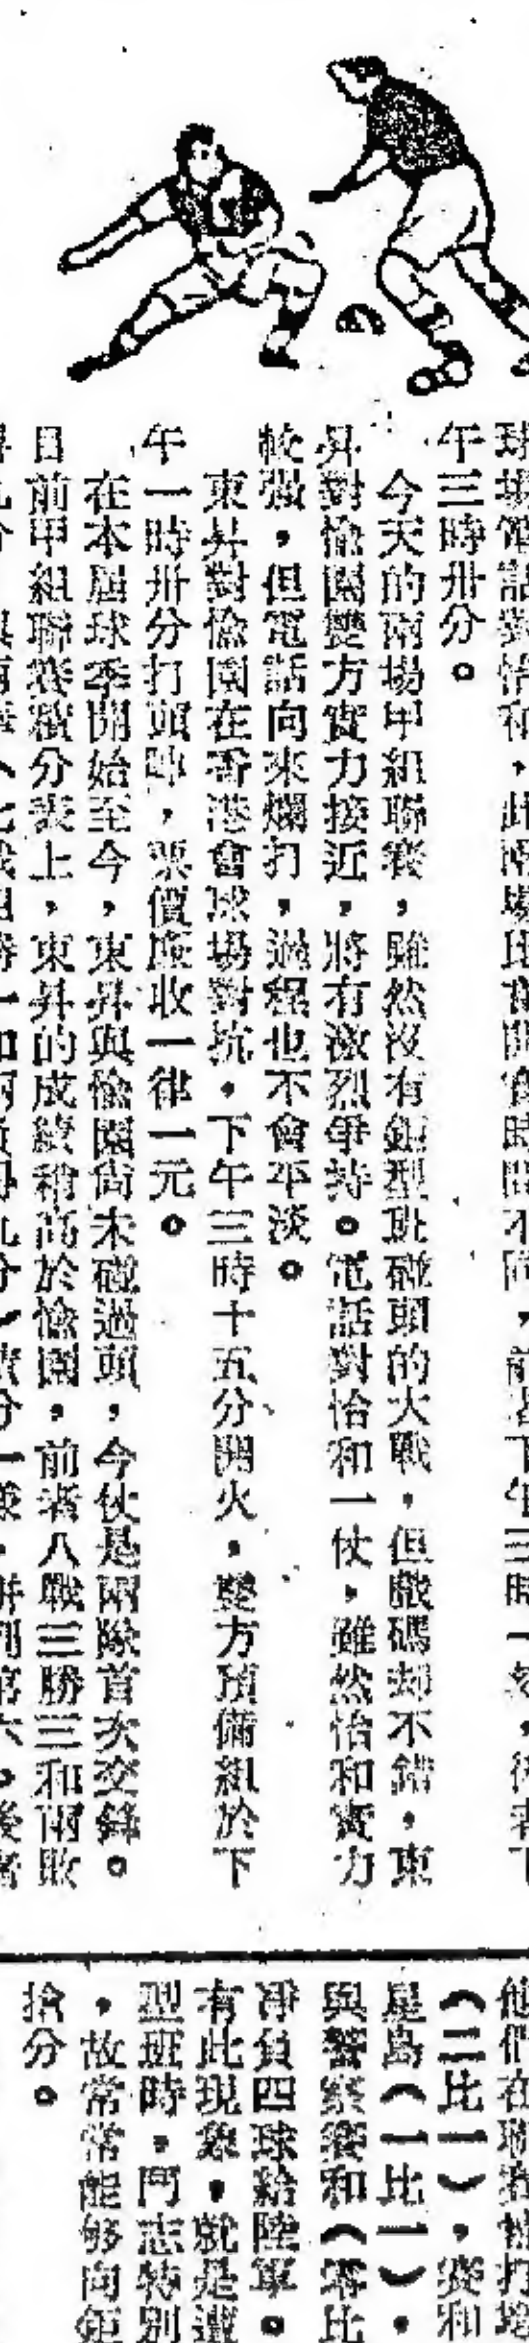 球場電話對怡和，此兩場比賽開賽時間不同，前者下午三時一刻，後者下
午三時卅分。
今天的兩場甲組聯賽，雖然沒有鉅型班碰頭的大戰，但戲碼却不錯，東
昇對愉園雙方實力接近，將有激烈爭持。電話對怡和一仗，雖然怡和實力
較强，但電話向來爛打，過程也不會平淡。
東昇對愉園在香港會球場對抗，下午三時十五分開火，雙方預備組於下
午一時卅分打頭陣，票價廉收一律一元。
在本屆球季開始至今，東昇與愉園尙未碰過頭，今仗是兩隊首次交鋒。
目前甲組聯賽積分表上，東昇的成績稍高於愉園，前者八戰三勝三和兩敗
得九分，
一和兩負得九分，積分一樣，併列第六。後者
（二比一），賽和
星島（一比一），
與警察賽和（零比
淨負四球給陸軍。
有此現象，就是遭
型班時，鬥志特別
，故常常能够向鉅
搶分。